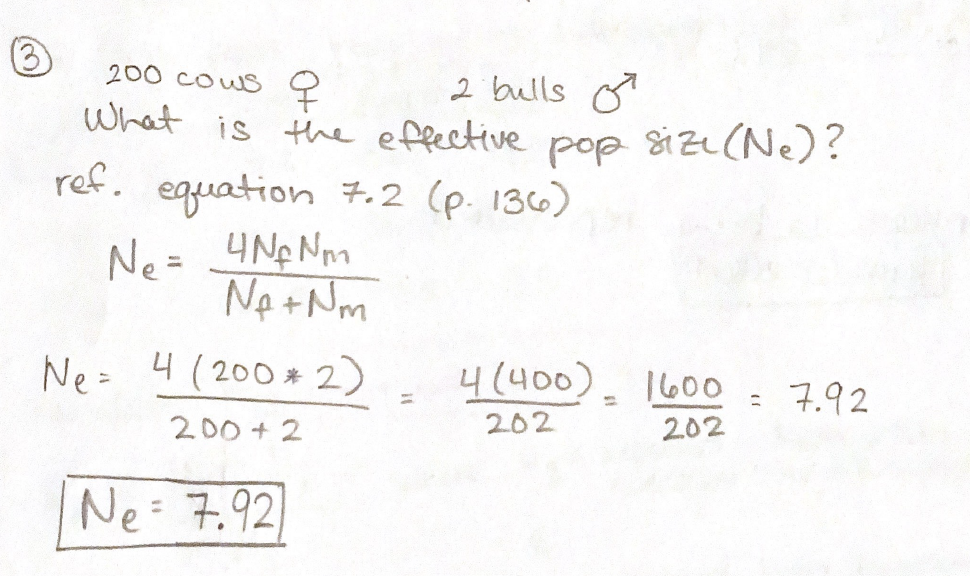 ③
200 cows ♀ 2 bulls ♂
What is the effective pop size (Ne)?
ref. equation 7.2 (p. 136)
Ne = 4NfNm / Nf + Nm
Ne = 4 (200 * 2) / 200 + 2 = 4 (400) / 202 = 1600 / 202 = 7.92
Ne = 7.92